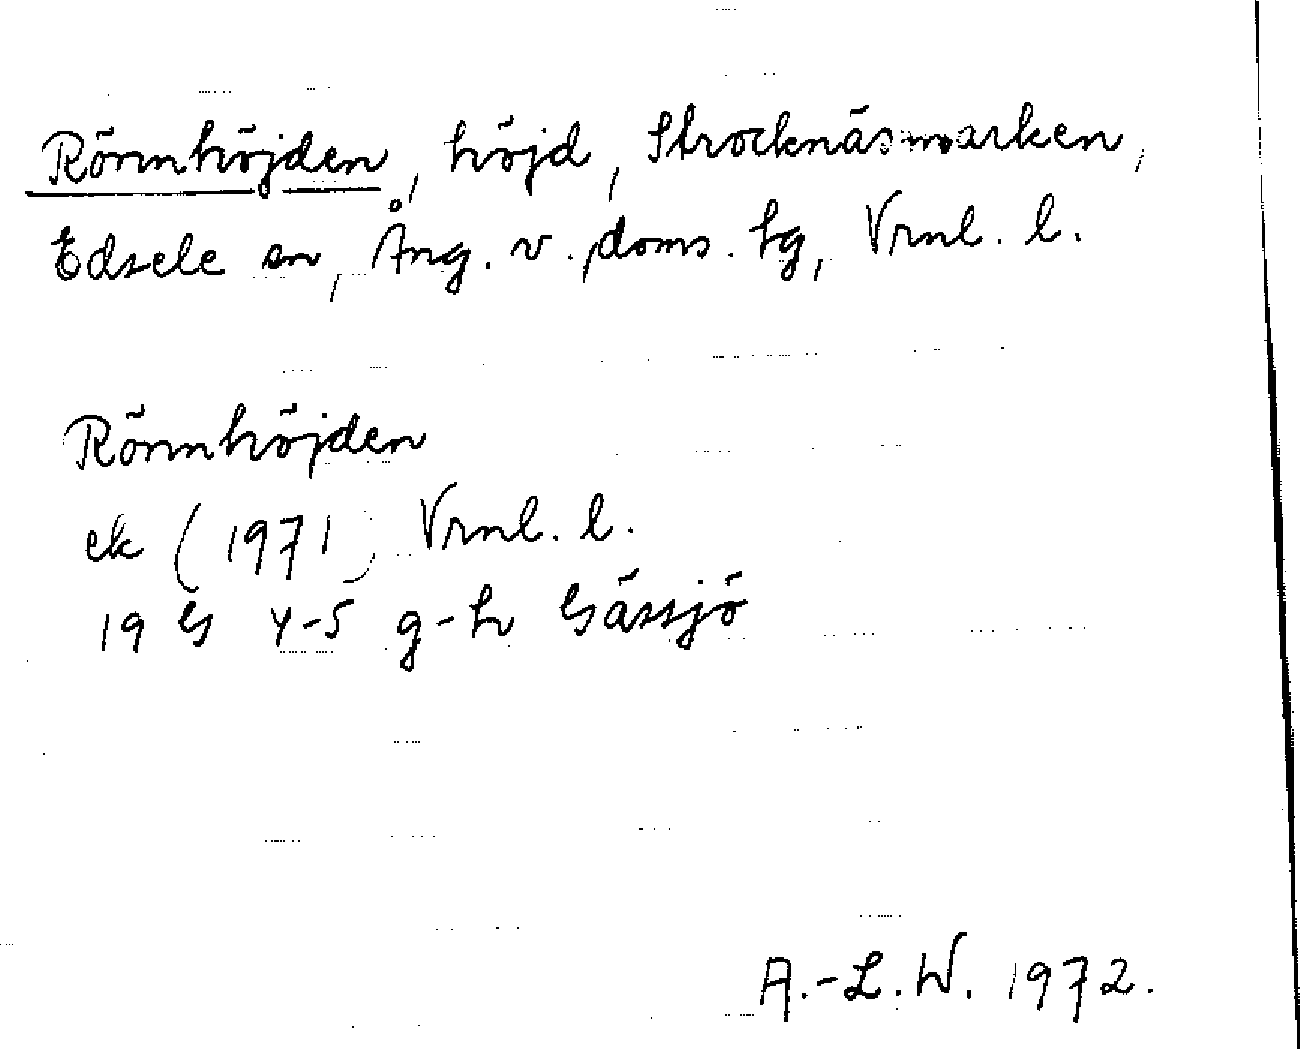 Rörmhöjden, höjd, Strocknäsmarken,
Edsele sn, Ång. v. doms. hg, Vrnl. l.
Rörmhöjden
ek (1971) Vrnl. l.
19 G 4-5 g-h Gässjö
A.-L.W. 1972.